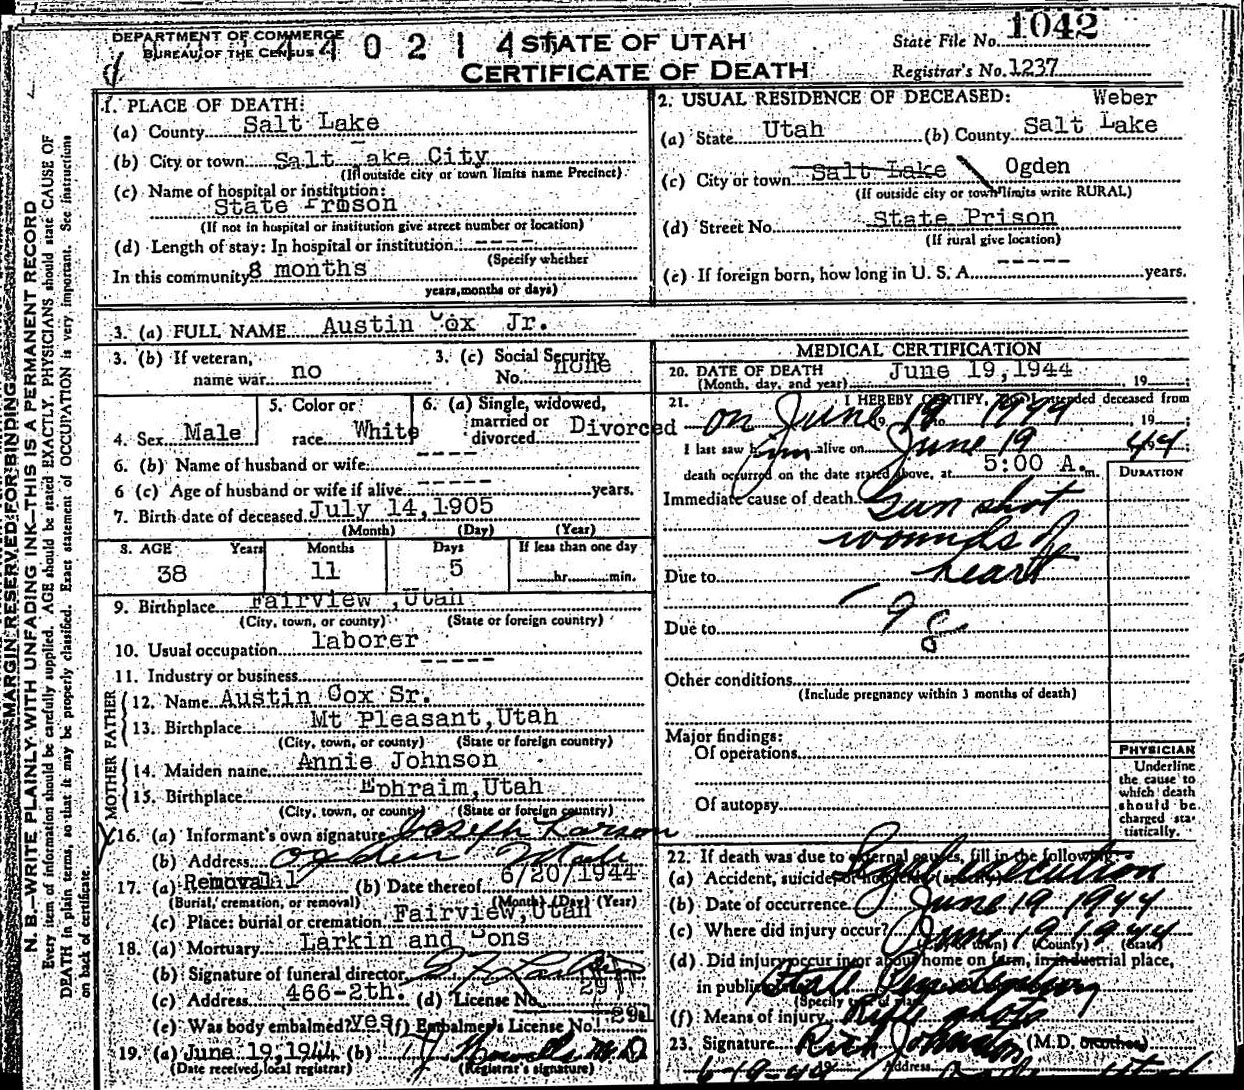 DEPARTMENT OF COMMERCE
BUREAU OF THE CENSUS
4 4 0 2 1 4
STATE OF UTAH
CERTIFICATE OF DEATH
State File No. 1042
Registrar's No. 1237
MARGIN RESERVED FOR BINDING
N. B.—WRITE PLAINLY WITH UNFADING INK—THIS IS A PERMANENT RECORD
Every item of information should be carefully supplied. AGE should be stated EXACTLY. PHYSICIANS should state CAUSE OF
DEATH in plain terms, so that it may be properly classified. Exact statement of OCCUPATION is very important. See instructions
on back of certificate.
1. PLACE OF DEATH:
(a) County Salt Lake
(b) City or town Salt Lake City
(If outside city or town limits name Precinct)
(c) Name of hospital or institution:
State Prison
(If not in hospital or institution give street number or location)
(d) Length of stay: In hospital or institution ----
(Specify whether
In this community 8 months
years, months or days)
2. USUAL RESIDENCE OF DECEASED: Weber
(a) State Utah (b) County Salt Lake
(c) City or town Salt Lake Ogden
(If outside city or town limits write RURAL)
(d) Street No. State Prison
(If rural give location)
(e) If foreign born, how long in U. S. A. ----- years.
3. (a) FULL NAME Austin Cox Jr.
3. (b) If veteran, name war no
3. (c) Social Security No. none
4. Sex Male
5. Color or race White
6. (a) Single, widowed, married or divorced Divorced
6. (b) Name of husband or wife ----
6 (c) Age of husband or wife if alive ----- years.
7. Birth date of deceased July 14, 1905
(Month) (Day) (Year)
8. AGE Years Months Days If less than one day
38 11 5 hr. min.
9. Birthplace Fairview, Utah
(City, town, or county) (State or foreign country)
10. Usual occupation laborer
11. Industry or business -----
FATHER
12. Name Austin Cox Sr.
13. Birthplace Mt Pleasant, Utah
(City, town, or county) (State or foreign country)
MOTHER
14. Maiden name Annie Johnson
15. Birthplace Ephraim, Utah
(City, town, or county) (State or foreign country)
16. (a) Informant's own signature Joseph Larson
(b) Address Ogden Utah
17. (a) Removal (b) Date thereof 6/20/1944
(Burial, cremation, or removal) (Month) (Day) (Year)
(c) Place: burial or cremation Fairview, Utah
18. (a) Mortuary Larkin and Sons
(b) Signature of funeral director
(c) Address 466-2th. (d) License No. 291
(e) Was body embalmed? yes (f) Embalmer's License No. 291
19. (a) June 19, 1944 (b) M.D.
(Date received local registrar) (Registrar's signature)
MEDICAL CERTIFICATION
20. DATE OF DEATH June 19, 1944
(Month, day, and year) 19
21. I HEREBY CERTIFY, That I attended deceased from
on June 19 1944, 19
I last saw him alive on June 19 1944
death occurred on the date stated above, at 5:00 A. m.
DURATION
Immediate cause of death Gun shot
wounds of
Due to heart
Due to
Other conditions
(Include pregnancy within 3 months of death)
Major findings:
Of operations
Of autopsy
PHYSICIAN
Underline
the cause to
which death
should be
charged sta-
tistically.
22. If death was due to external causes, fill in the following:
(a) Accident, suicide, or homicide (specify) Legal execution
(b) Date of occurrence June 19 1944
(c) Where did injury occur? June 19 1944
(City or town) (County) (State)
(d) Did injury occur in or about home on farm, in industrial place,
in public State Penitentiary
(Specify type of place)
(f) Means of injury Rifle shots
23. Signature (M.D. or other)
6-19-44 Address